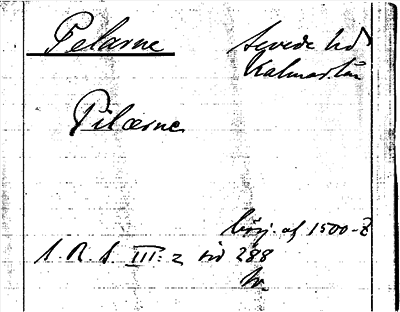 Pelarne
Sevede hd
Kalmar län
Pilærne
börj. af 1500-t
S. R. A. III: 2 sid 288